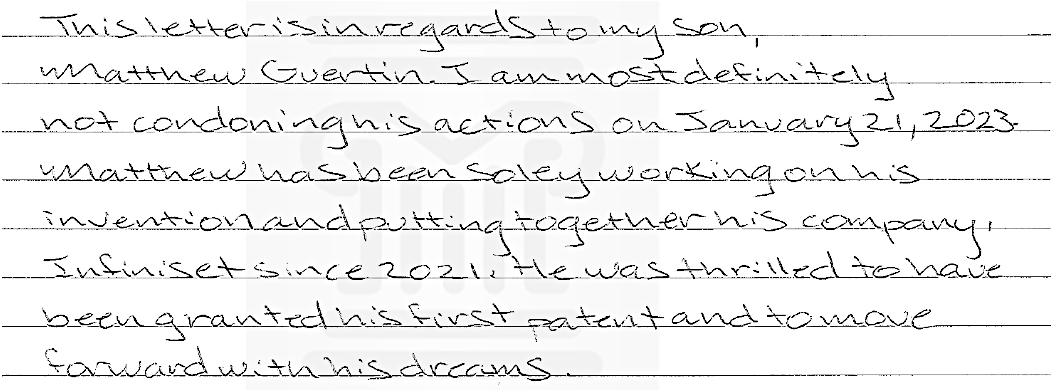 This letter is in regards to my son,
Matthew Guertin. I am most definitely
not condoning his actions on January 21, 2023.
Matthew has been soley working on his
invention and putting together his company,
Infiniset since 2021. He was thrilled to have
been granted his first patent and to move
forward with his dreams.